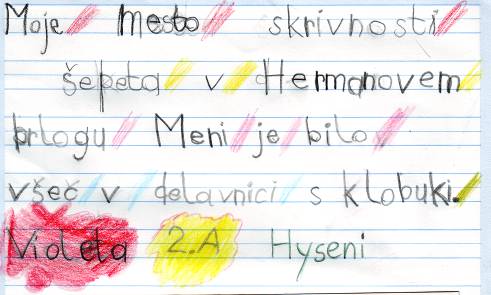 Moje mesto skrivnosti
šepeta v Hermanovem
brlogu Meni je bilo
všeč v delavnici s klobuki.
Violeta 2.A Hyseni